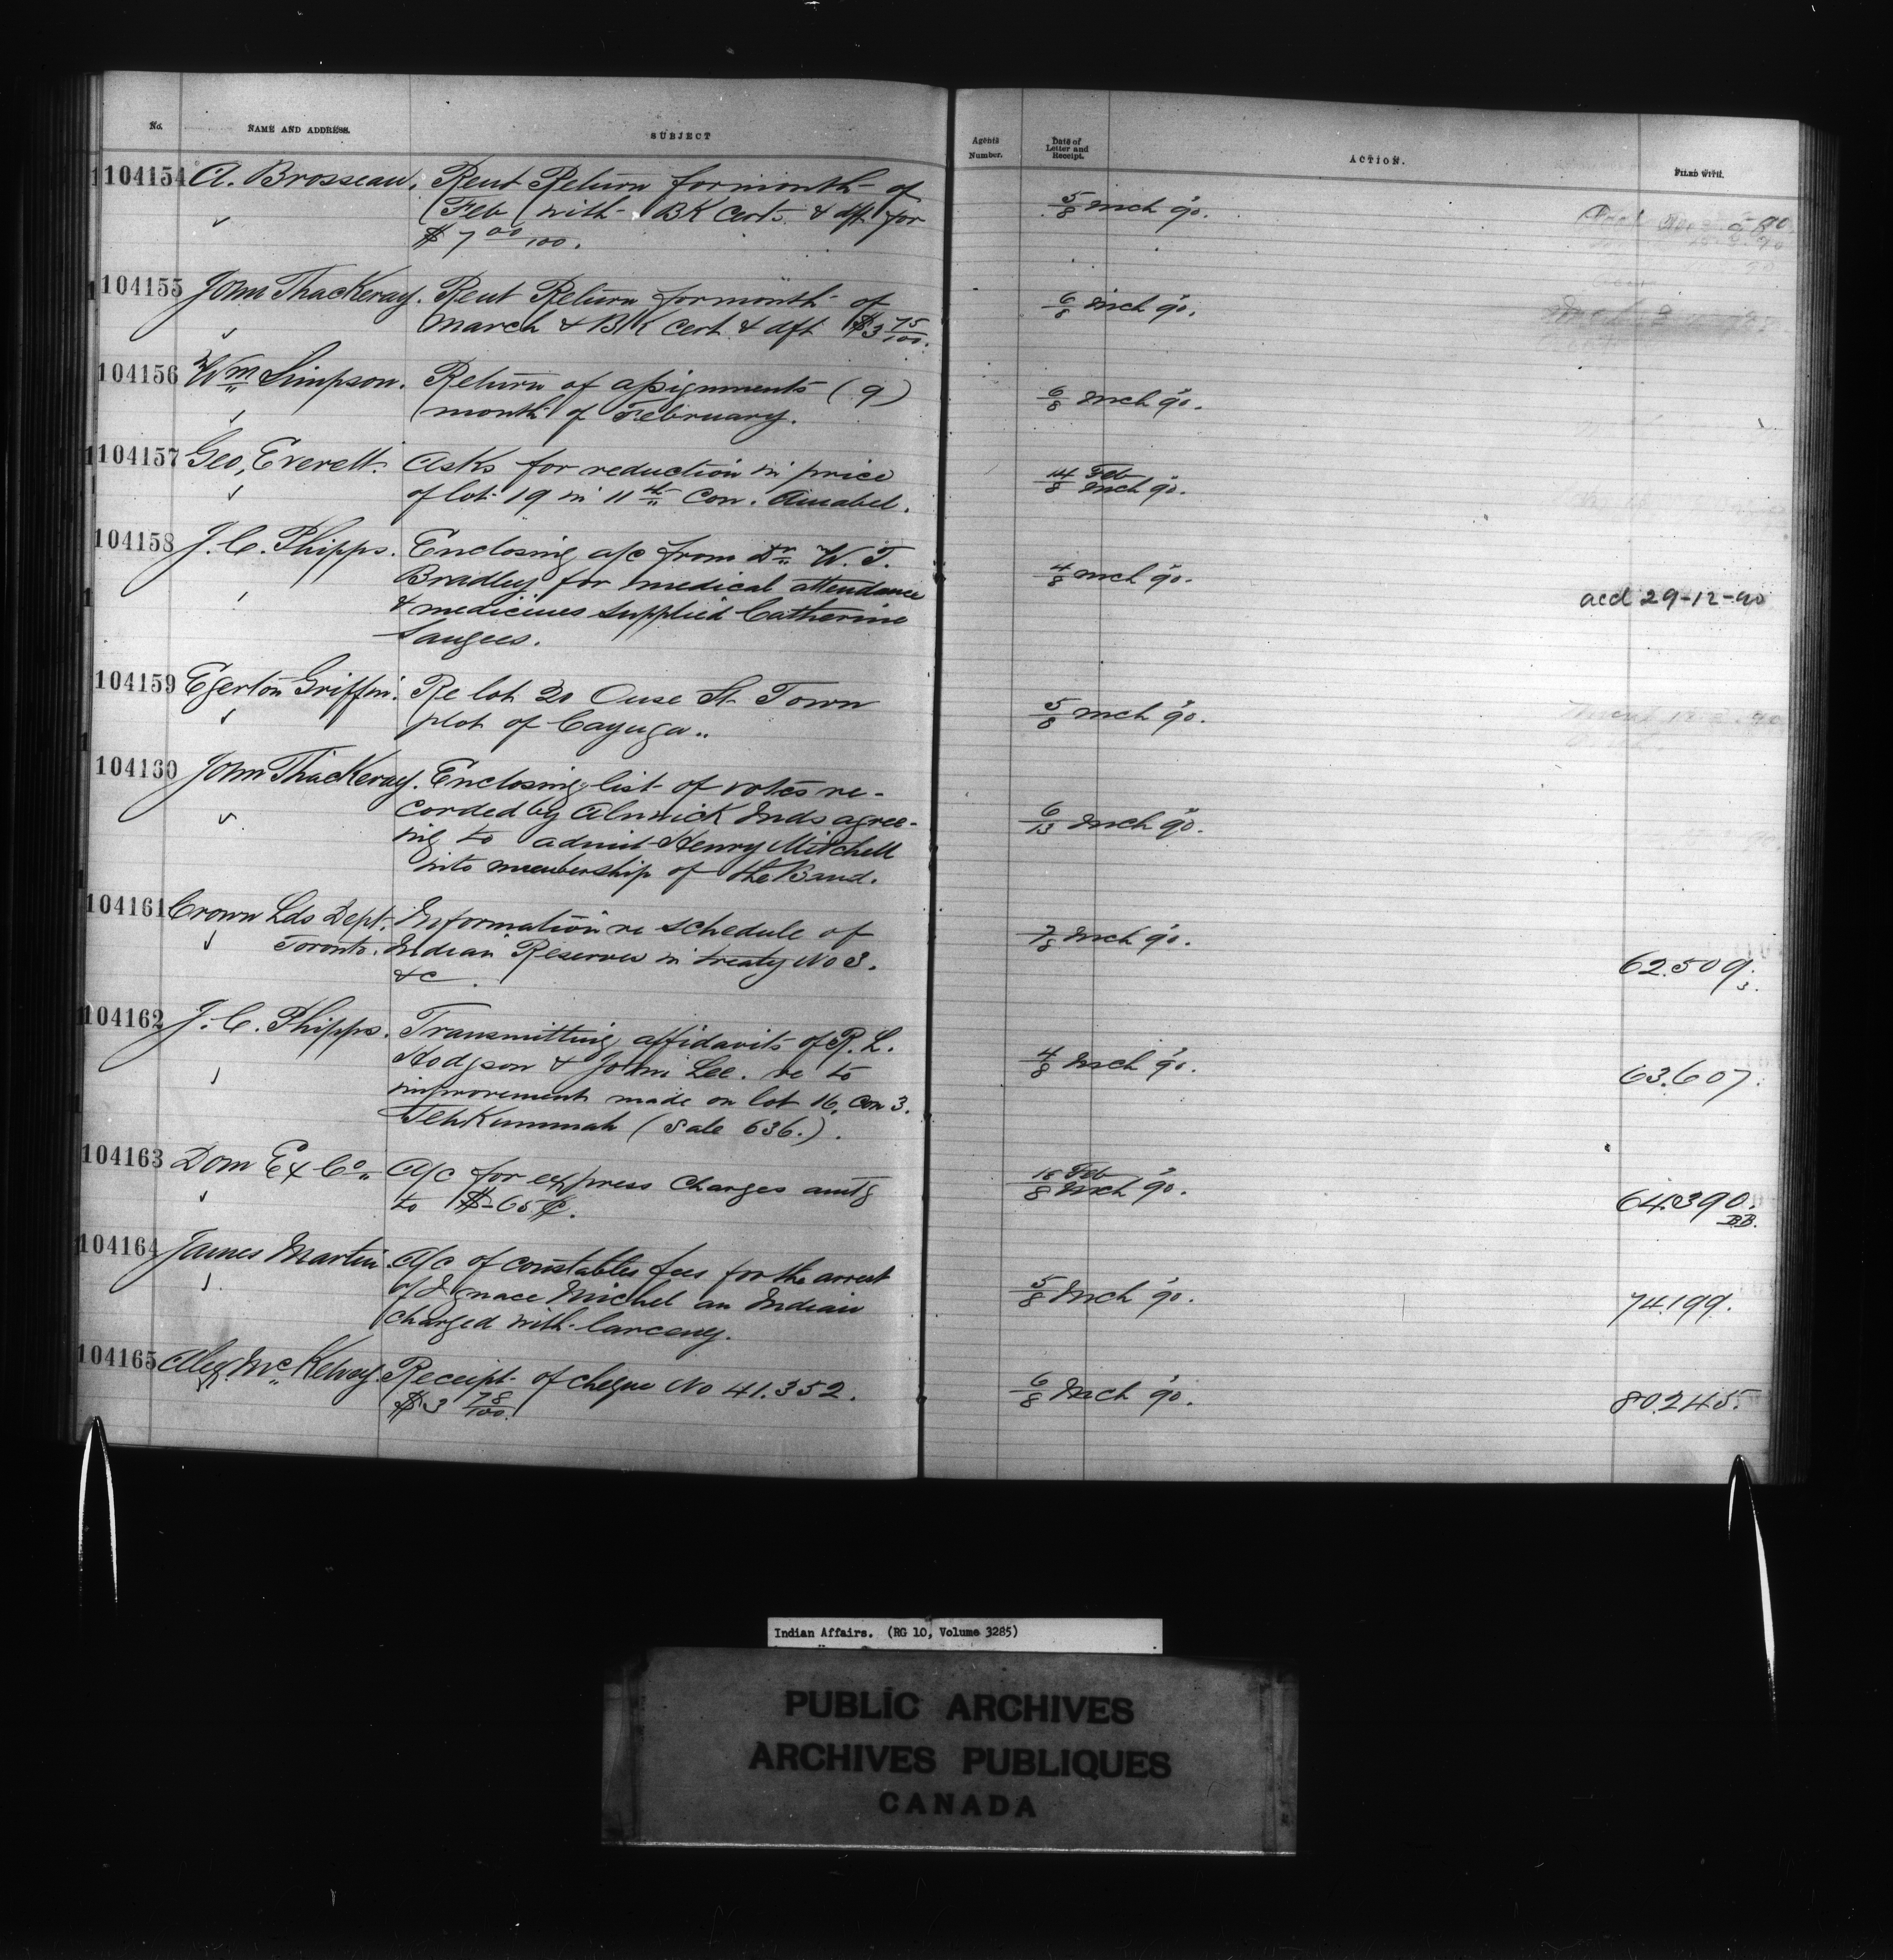 No. NAME AND ADDRESS. SUBJECT Agents Number. Date of Letter and Receipt. ACTION. FILED WITH.
104154 A. Brosseau. Rent Return for month of
Feb with BK Cert. & dft for
$7 00/100.
5/8 Mch 90.
104155 John Thackeray. Rent Return for month of
March & BK Cert. & dft $3 75/100.
6/8 Mch 90.
104156 Wm Simpson. Return of assignments (9)
month of February.
6/8 Mch 90.
104157 Geo, Everett. Asks for reduction in price
of lot 19 in 11th Con. Amabel.
14 Feb/8 Mch 90.
104158 J. C. Phipps. Enclosing a/c from Dr W. T.
Bradley for medical attendance
& medicines supplied Catherine
Saugees.
4/8 Mch 90.
acd 29-12-90
104159 Egerton Griffin. Re lot 20 Ouse St Town
plot of Cayuga..
5/8 Mch 90.
104160 John Thackeray. Enclosing list of votes re-
corded by Alnwick Inds agree-
ing to admit Henry Mitchell
into membership of the Band.
6/13 Mch 90.
104161 Crown Lds Dept. Information re schedule of
Toronto. Indian Reserves in treaty No 3.
&c.
7/8 Mch 90.
62.509.
104162 J. C. Phipps. Transmitting affidavits of R. L.
Hodgson & John Lee. re to
improvement made on lot 16, Con 3.
Tehkummah (Sale 636.).
4/8 Mch 90.
63.607.
104163 Dom Ex Co. A/c for express charges amtg
to $-65¢.
18 Feb/8 Mch 90.
64.390.
BB.
104164 James Martin. A/c of constables fees for the arrest
of Ignace Michel an Indian
charged with larceny.
5/8 Mch 90.
74.199.
104165 Alex. McKelvey. Receipt of cheque No 41.352.
$3 78/100.
6/8 Mch 90.
80.245.
Indian Affairs. (RG 10, Volume 3285)
PUBLIC ARCHIVES
ARCHIVES PUBLIQUES
CANADA